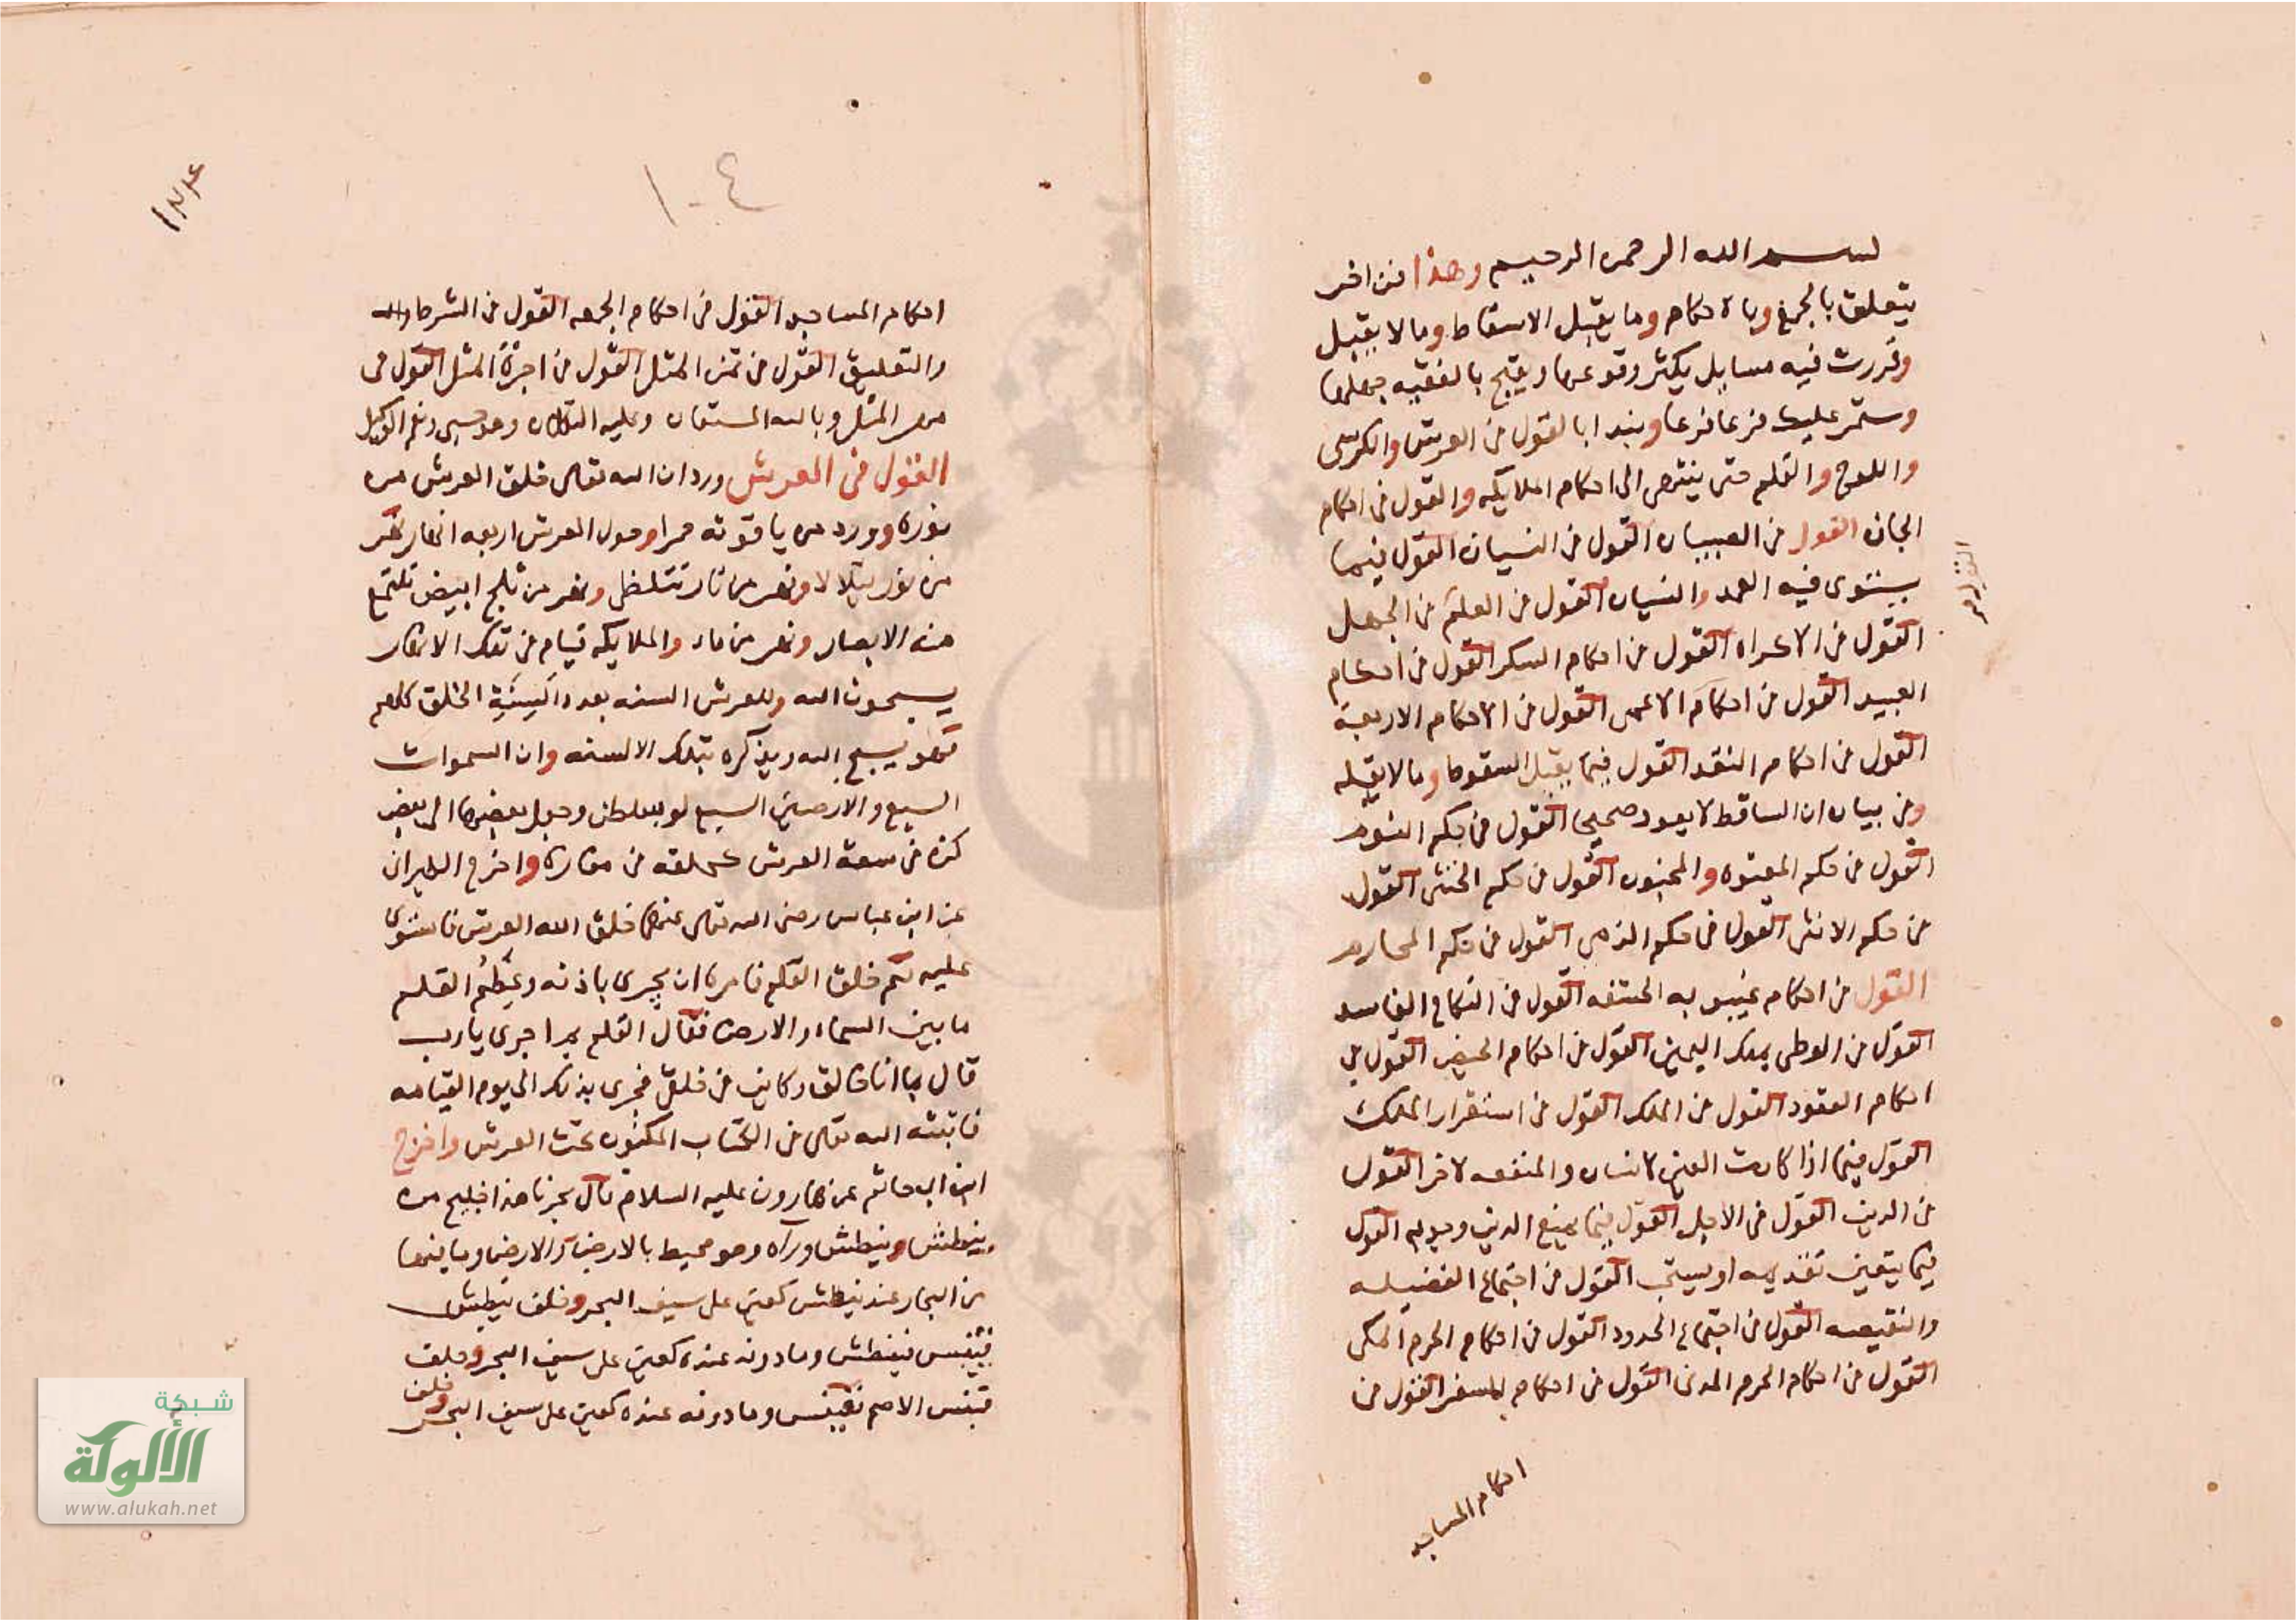 بسم الله الرحمن الرحيم وهذا فن اخر
يتعلق بالجمع وبالاحكام وما يقبل الاسقاط وما لا يقبل
وقررت فيه مسايل يكثر وقوعها ويقبح بالفقيه جهلها
وستمر عليك فرعا فرعا ونبدا بالقول في العرش والكرسي
واللوح والقلم حتى ينتهي الى احكام الملايكه والقول في احكام
الجان القول في الصبيان القول في النسيان القول فيما
يستوى فيه العمد والنسيان القول في العلم في الجهل
القول في الاكراه القول في احكام السكر القول في احكام
العبيد القول في احكام الاعمى القول في الاحكام الاربعة
القول في احكام النقد القول فيما يقبل السقوط وما لا يقبله
وفي بيان ان الساقط لا يعود صحيح القول في حكم النوم
القول في حكم المعتوه والمجنون القول في حكم الخنثى القول
في حكم الانثى القول في حكم الذمي القول في حكم المحارم
القول في احكام غيبوبه الحشفه القول في النكاح الفاسد
القول في الوطى بملك اليمين القول في احكام الحيض القول في
احكام العقود القول في الملك القول في استقرار الملك
القول فيما اذا كانت العين لانسان والمنفعه لاخر القول
في الدين القول في الاجل القول فيما يمنع الدين وجوبه القول
فيما يتعين تقديمه او يستحب القول في اجتماع الفضيله
والنقيصه القول في اجتماع الحدود القول في احكام الحرم المكى
القول في احكام الحرم المدنى القول في احكام السفر القول في
احكام المساجد
١٠٤
احكام المساجد القول في احكام الجمعه القول في الشرط
والتعليق القول في ثمن المثل القول في اجرة المثل القول في
مهر المثل وبالله المستعان وعليه التكلان وهو حسبى ونعم الوكيل
القول في العرش ورد ان الله تعالى خلق العرش من
نوره وورد من ياقوته حمرا وحول العرش اربعه انهار نهر
من نور يتلالا ونهر من نار تتلظى ونهر من ثلج ابيض تلتمع
منه الابصار ونهر من ماء والملايكه قيام في تلك الانهار
يسبحون الله وللعرش السنه بعدد السنة الخلق كلهم
فهو يسبح الله ويذكره بتلك الالسنه وان السموات
السبع والارضين السبع لو بسطن وجعل بعضها الى بعض
كن في سعة العرش كحلقه في مفازه واخرج الطبرانى
عن ابن عباس رضى الله تعالى عنهما خلق الله العرش فاستوى
عليه ثم خلق القلم فامره ان يجرى باذنه وعظم القلم
ما بين السماء والارض فقال القلم بم اجرى يارب
قال بما انا خالق وكاين في خلقى فجرى بذلك الى يوم القيامه
فاثبته الله تعالى في الكتاب المكنون تحت العرش واخرج
ابن ابى حاتم عن هارون عليه السلام قال بحرنا هذا خليج من
نيطش ونيطش وراه وهو محيط بالارض والارض وما بينها
من البحار عند نيطش كعين على سيف البحر وخلف نيطش
قينس فنيطش وما دونه عنده كعين على سيف البحر وخلف
قينس الاصم فقينس وما دونه عنده كعين على سيف البحر وخلف
شبكة
الألوكة
www.alukah.net